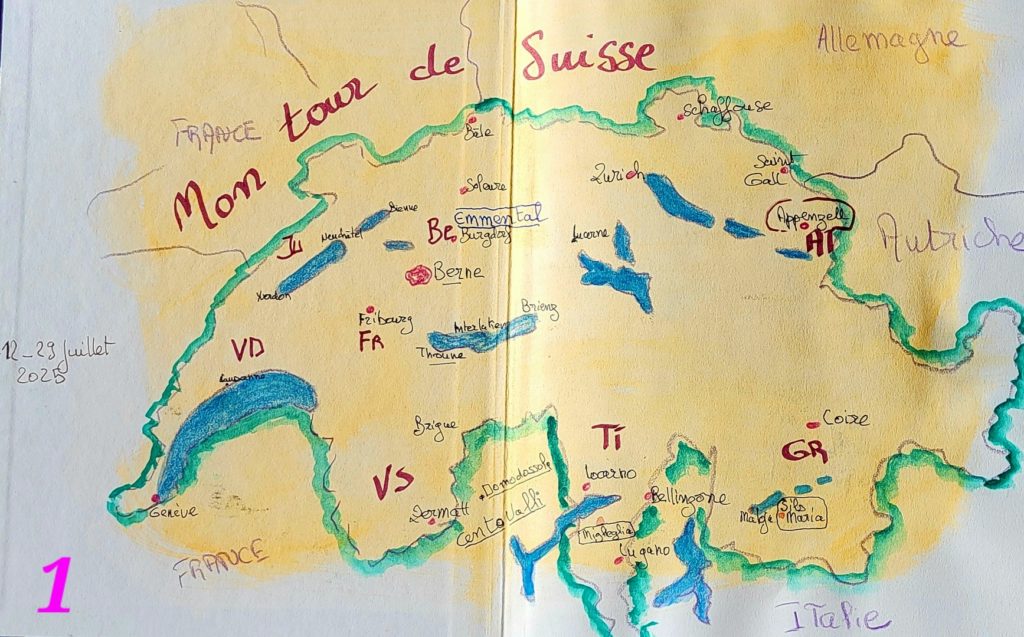 Mon tour de Suisse
Allemagne
FRANCE
Schaffouse
Bâle
Saint
Gall
Zurich
Soleure
Appenzell
AI
Autriche
Bienne
Emmental
Burgdrf
BE
Neuchâtel
JU
Lucerne
Berne
Yverdon
Brienz
Fribourg
Interlaken
FR
Thoune
VD
12-29 juillet
2025
Lausanne
Brigue
Coire
TI
GR
Domodossola
Locarno
VS
Bellinzone
Zermatt
Centovalli
Maloja
Sils
Maria
Genève
Miglieglia
Lugano
FRANCE
1
Italie